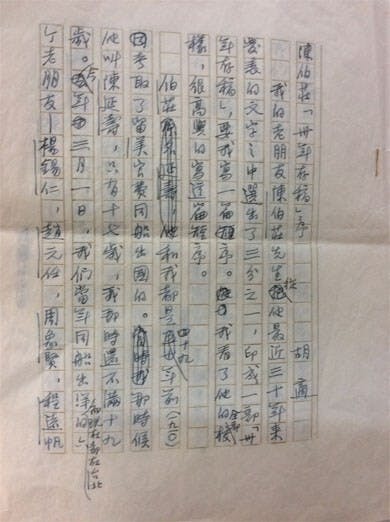 陳伯莊「卅年存稿」序　胡適
我的老朋友陳伯莊先生從他最近三十年來
發表的文字之中選出了三分之一，印成一部「卅
年存稿」，要我寫一篇短序。我看了他的全部校
樣，很高興的寫這篇短序。
伯莊和我都是四十九年前（一九一〇）
考取了留美官費同船出國的。那時候
他叫陳延壽，只有十七歲，我那時還不滿十九
歲。今年三月一日，我們當年同船出洋的，而現在都在台北
个老朋友—楊錫仁，趙元任，周象賢，程遠帆